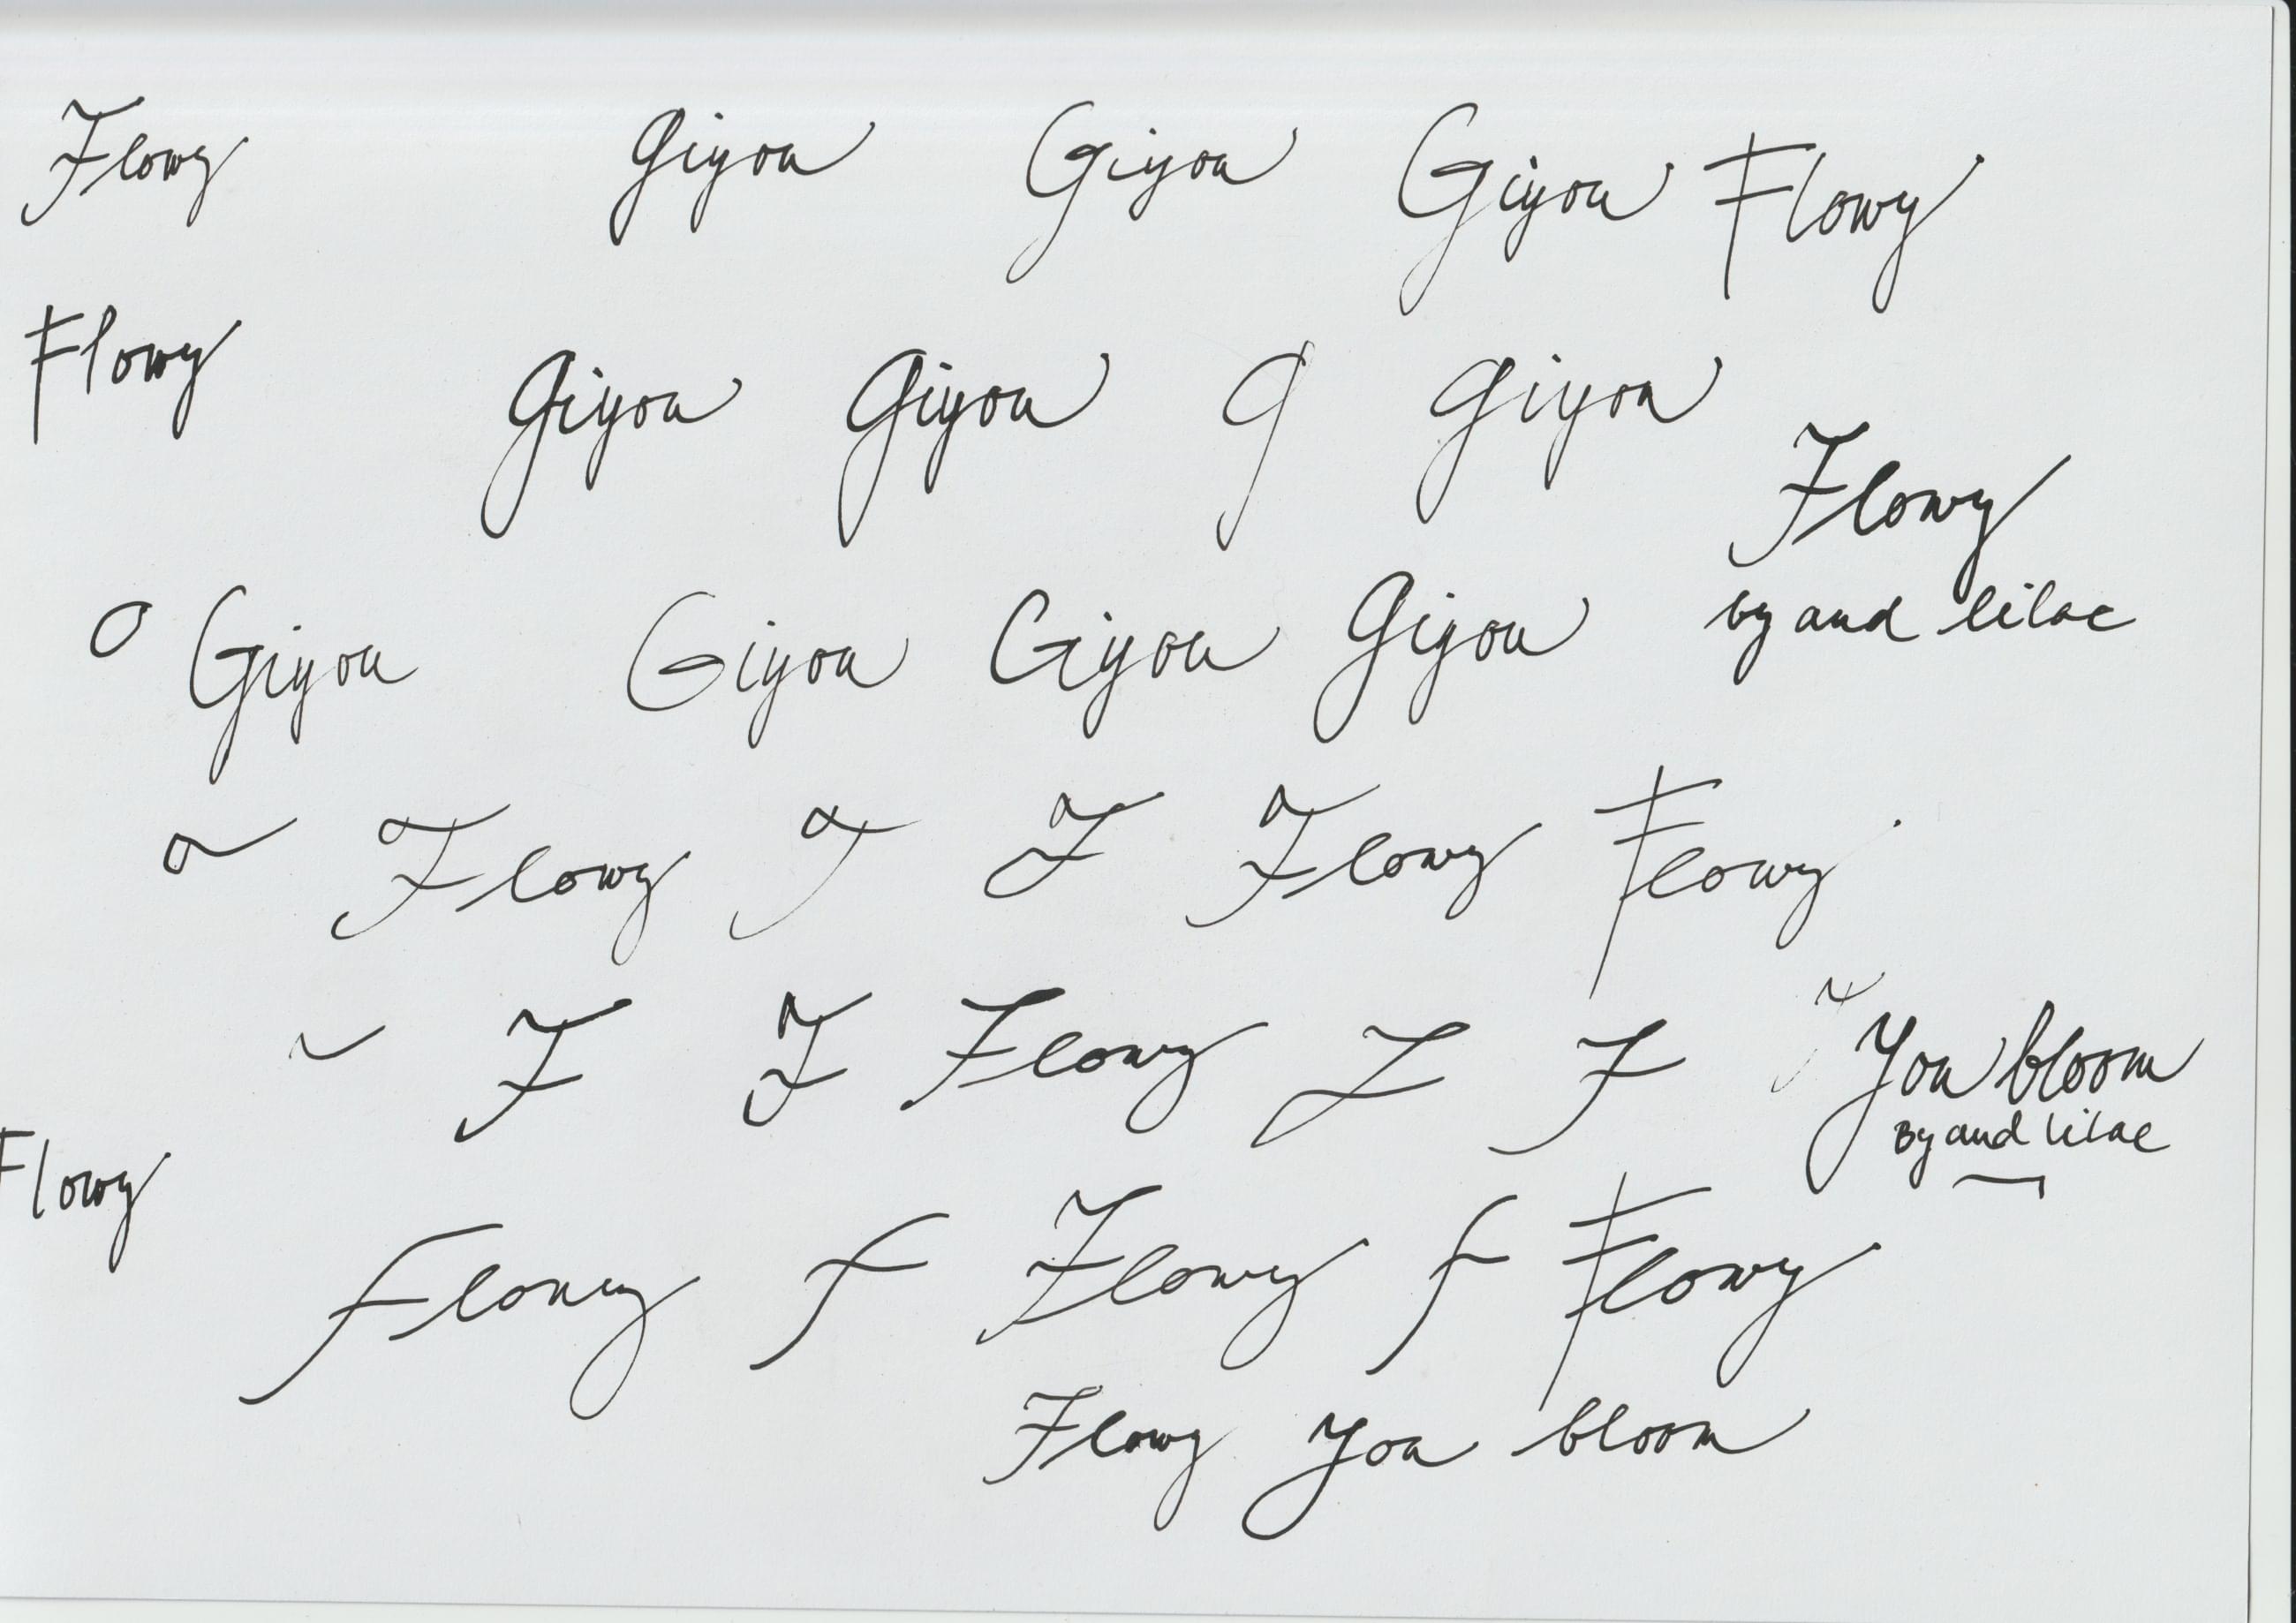 Flowy Giyou Giyou Giyou Flowy
Flowy Giyou Giyou G Giyou
Flowy
by and lilac
Giyou Giyou Giyou Giyou
Flowy F F Flowy Flowy
F F Flowy F F
You bloom
by and lilac
Flowy
Flowy F Flowy F Flowy
Flowy You bloom